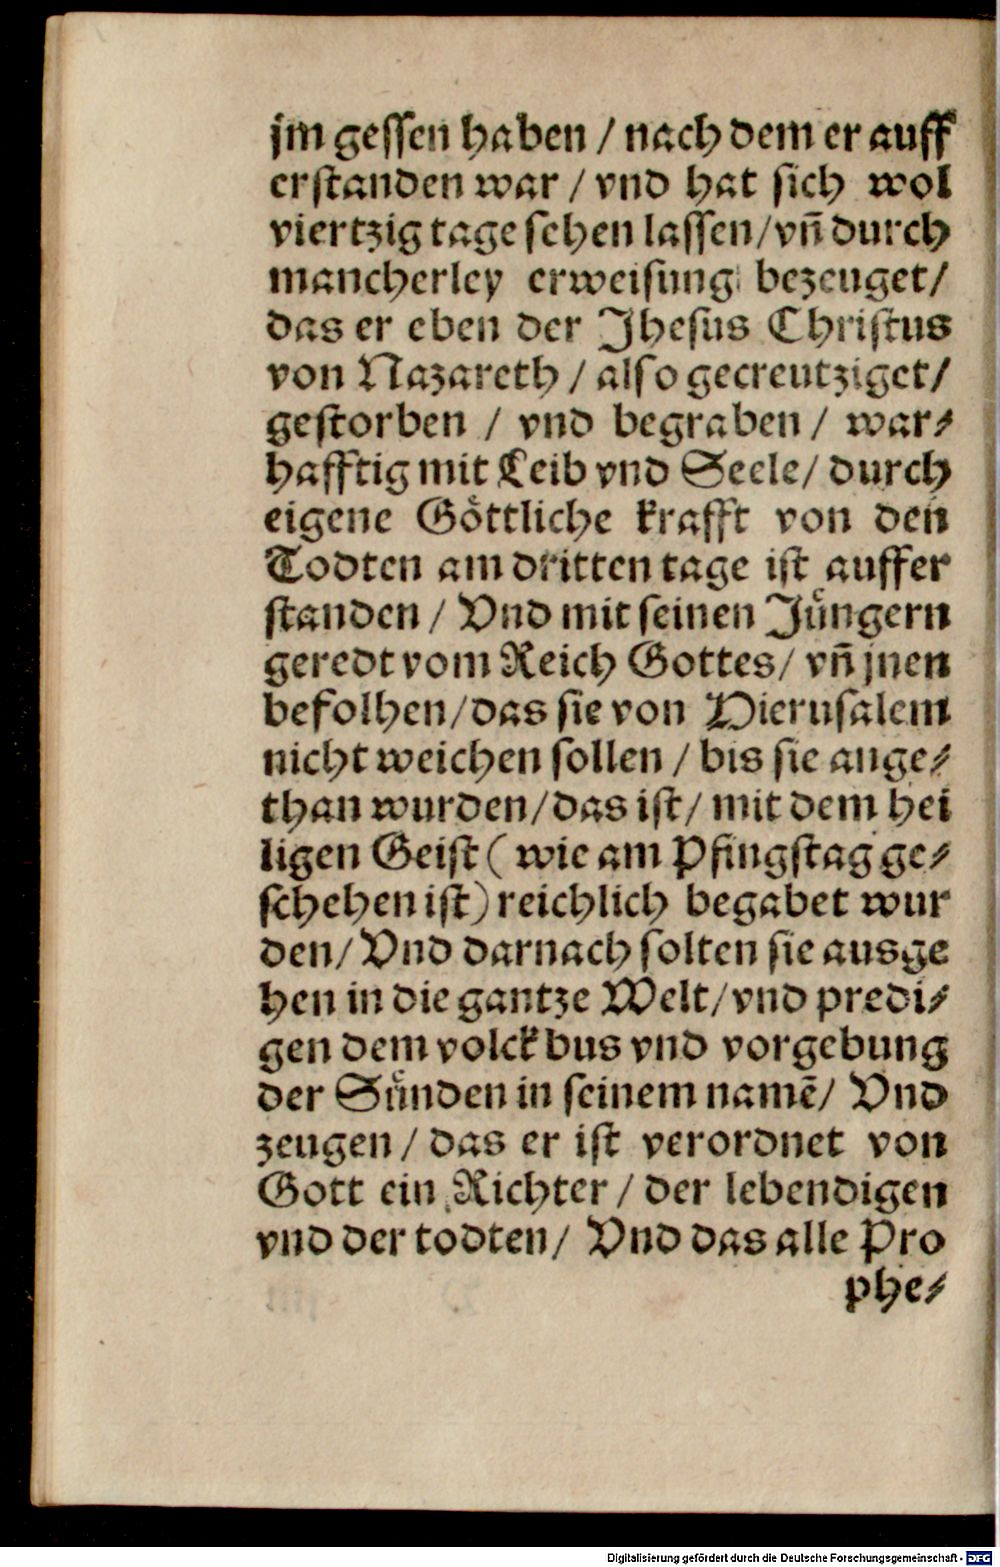 jm gessen haben / nach dem er auff
erstanden war / vnd hat sich wol
viertzig tage sehen lassen/vñ durch
mancherley erweisung bezeuget/
das er eben der Jhesus Christus
von Nazareth / also gecreutziget/
gestorben / vnd begraben / war⸗
hafftig mit Leib vnd Seele/ durch
eigene Göttliche krafft von den
Todten am dritten tage ist auffer
standen / Vnd mit seinen Jüngern
geredt vom Reich Gottes/ vñ jnen
befolhen/das sie von Hierusalem
nicht weichen sollen / bis sie ange⸗
than wurden/das ist/ mit dem hei
ligen Geist ( wie am Pfingstag ge⸗
schehen ist) reichlich begabet wur
den/ Vnd darnach solten sie ausge
hen in die gantze Welt/ vnd predi⸗
gen dem volck bus vnd vorgebung
der Sünden in seinem namē/ Vnd
zeugen / das er ist verordnet von
Gott ein Richter / der lebendigen
vnd der todten/ Vnd das alle Pro
phe⸗
Digitalisierung gefördert durch die Deutsche Forschungsgemeinschaft - DFG